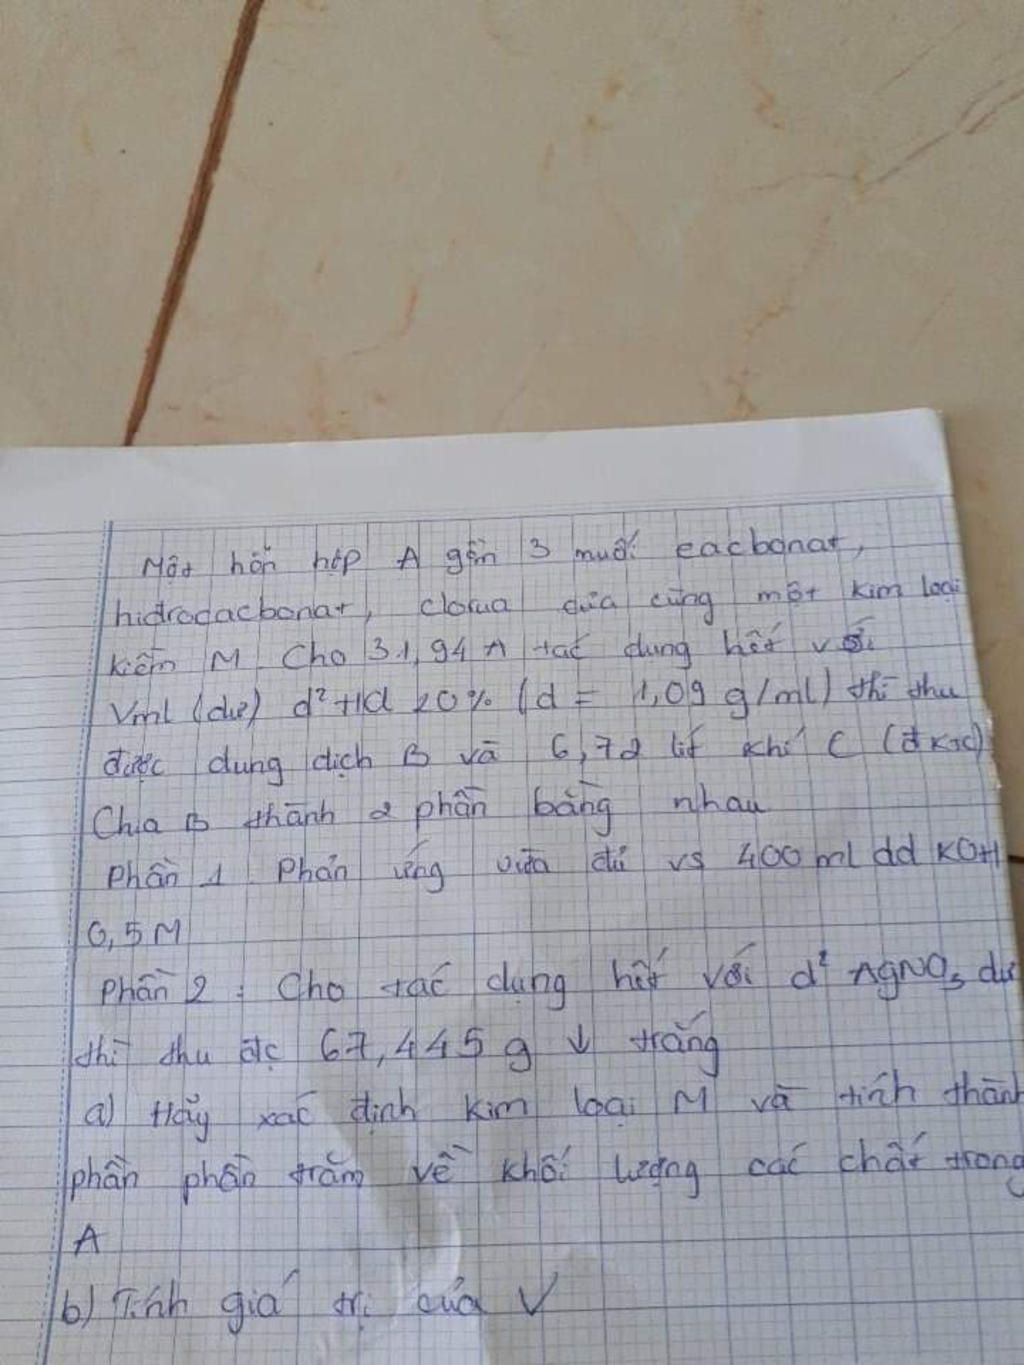 Một hỗn hợp A gồm 3 muối cacbonat,
hidrocacbonat, clorua của cùng một kim loại
kiềm M. Cho 31,94 A tác dụng hết với
Vml (dư) d² HCl 20% (d = 1,09 g/ml) thì thu
được dung dịch B và 6,72 lít khí C (đktc)
Chia B thành 2 phần bằng nhau
Phần 1 Phản ứng vừa đủ vs 400 ml dd KOH
0,5M
Phần 2 : Cho tác dụng hết với d² AgNO3 dư
thì thu đc 67,445 g ↓ trắng
a) Hãy xác định kim loại M và tính thành
phần phần trăm về khối lượng các chất trong
A
b) Tính giá trị của V